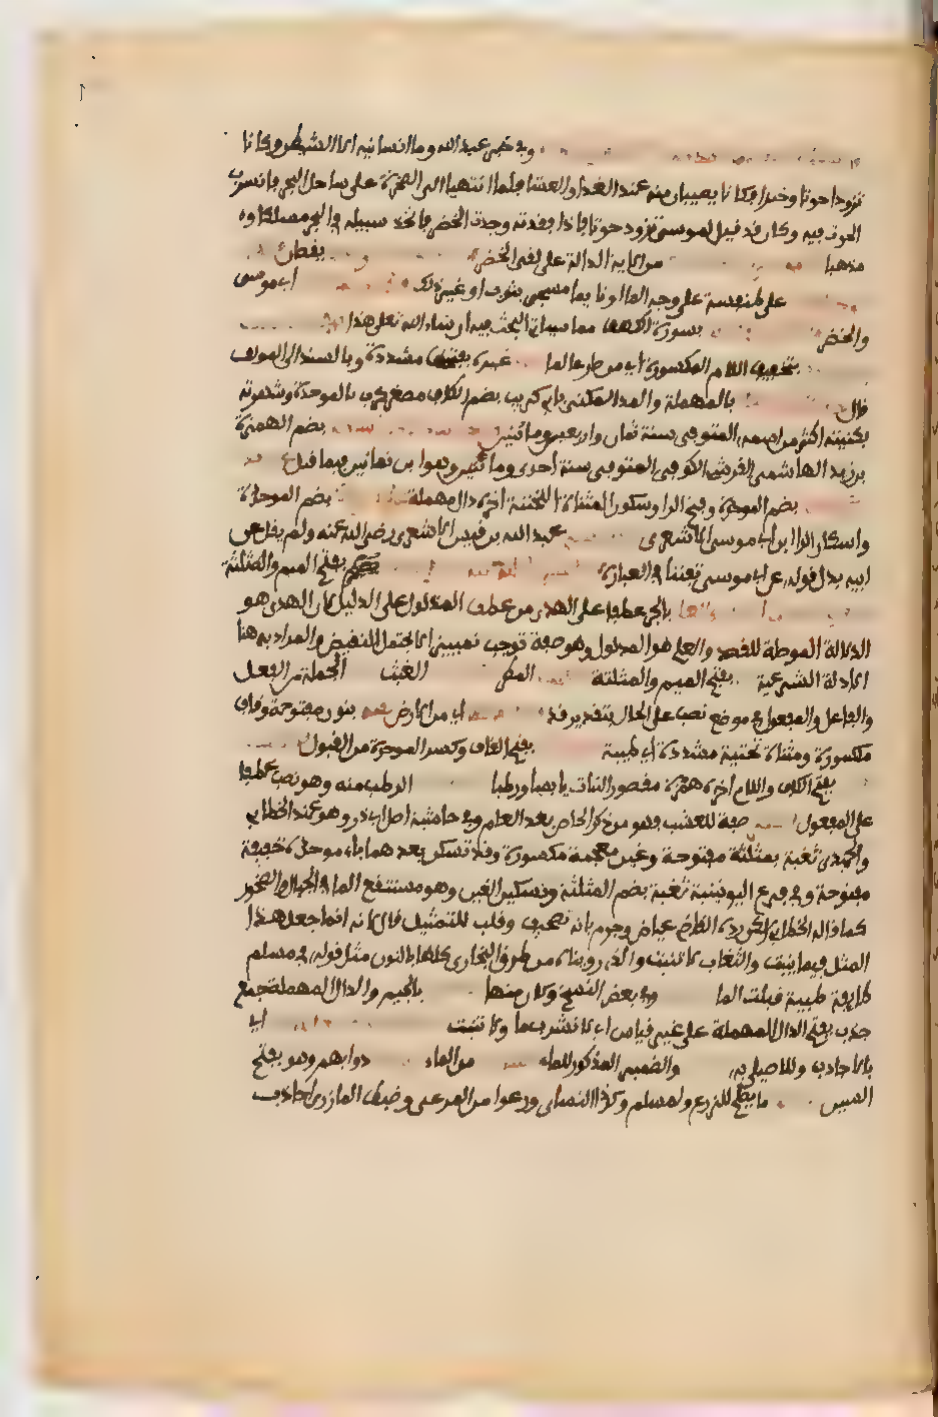 وفي حرف عبد الله وما أنسانيه إلا الشيطن وكانا
تزودا حوتا وخبزا فكانا يصيبان منه عند الغدا والعشا فلما انتهيا إلى الصخرة على ساحل البحر فانسرب
الحوت فيه وكان قد قيل لموسى تزود حوتا فإذا فقدته وجدت الخضر فاتخذ سبيله في البحر مسلكا و
مذهبا من الآية الدالة على لقي الخضر يقصان
على طنفسة على وجه الما او نايما مسجى بثوب او غير ذلك اي موسى
والخضر بسورة الكهف مما سياتي البحث فيه ان شاء الله تعلى هذا
بتخفيف اللام المكسورة اي من صار عالما مشددة وبالسند الى المولف
قال بالمهملة والمد المكنى بابي كريب بضم الكاف مصغر كرب بالموحدة وشهرته
بكنيته اكثر من اسمه المتوفى سنة ثمان واربعين وماتين بضم الهمزة
بن زيد الهاشمي القرشي الكوفي المتوفى سنة احدى وماتين وهو ابن ثمانين فيما قيل
بضم الموحدة وفتح الرا وسكون المثناة التحتية اخره دال مهملة بضم الموحدة
واسكان الرا ابن ابي موسى الاشعري عبد الله بن قيس الاشعري رضي الله عنه ولم يقل عن
ابيه بدل قوله عن ابي موسى تفننا في العبارة بفتح الميم والمثلثة
بالجر عطفا على الهدى من عطف المدلول على الدليل لان الهدى هو
الدلالة الموصلة للقصد والعلم هو المدلول وهو صفة توجب تمييزا لا يحتمل النقيض والمراد به هنا
الادلة الشرعية بفتح الميم والمثلثة المطر الغيث الجملة من الفعل
والفاعل والمفعول في موضع نصب على الحال بتقدير قد اي من الارض بنون مفتوحة وقاف
مكسورة ومثناة تحتية مشددة اي طيبة بفتح القاف وكسر الموحدة من القبول
بفتح الكاف واللام اخره همزة مقصور النبات يابسا ورطبا الرطب منه وهو نصب عطفا
على المفعول صفة للعشب فهو من ذكر الخاص بعد العام وفي حاشية اصل ابي ذر وهو عند الخطابي
والحميدي ثغبة بمثلثة مفتوحة وغين معجمة مكسورة وقد تسكن بعدهما باء موحدة خفيفة
مفتوحة وفي فرع اليونينية ثغبة بضم المثلثة وتسكين الغين وهو مستنقع الما في الجبال والصخور
كما قاله الخطابي لكن رده القاضي عياض وجزم بانه تصحيف وقلب للتمثيل قال لانه انما جعل هذا
المثل فيما ينبت والثغاب لا تنبت والذي رويناه من طرق البخاري كلها بالنون مثل قوله في مسلم
طايفة طيبة قبلت الما وفي بعض النسخ وكان منها بالجيم والدال المهملة جمع
جدب بفتح الدال المهملة على غير قياس اي لا تشرب ما ولا تنبت اي
بالاجادب وللاصيلي به والضمير المذكور للماء من الماء دوابهم وهو بفتح
السين ما يصلح للزرع ولمسلم وكذا النسائي ورعوا من الرعي وضبطه المازري اجاذب